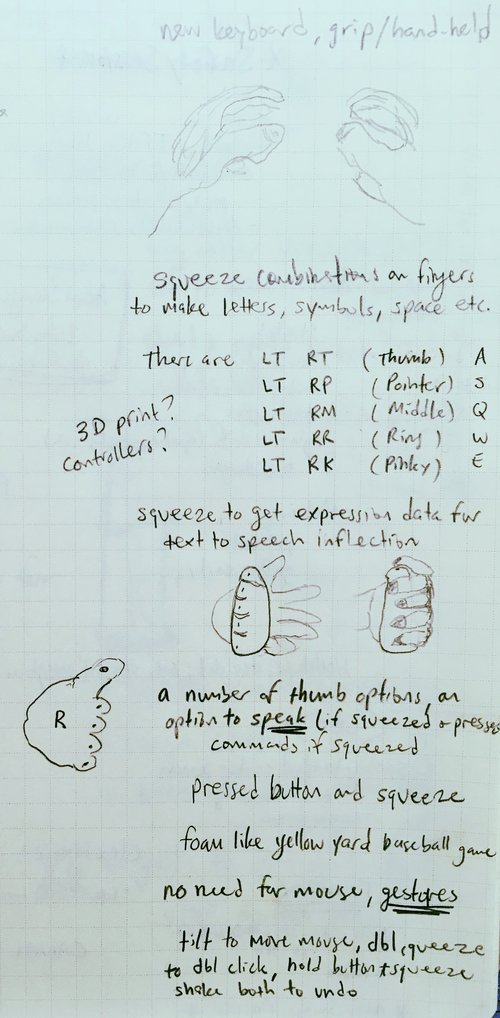 new keyboard, grip/hand-held
squeeze combinations on fingers
to make letters, symbols, space etc.
There are LT RT (Thumb) A
LT RP (Pointer) S
LT RM (Middle) Q
LT RR (Ring) W
LT RK (Pinky) E
3D print?
controllers?
squeeze to get expression data for
text to speech inflection
R
a number of thumb options, an
option to speak (if squeezed + presses
commands if squeezed
pressed button and squeeze
foam like yellow yard baseball game
no need for mouse, gestures
tilt to move mouse, dbl, queeze
to dbl click, hold button + squeeze
shake both to undo